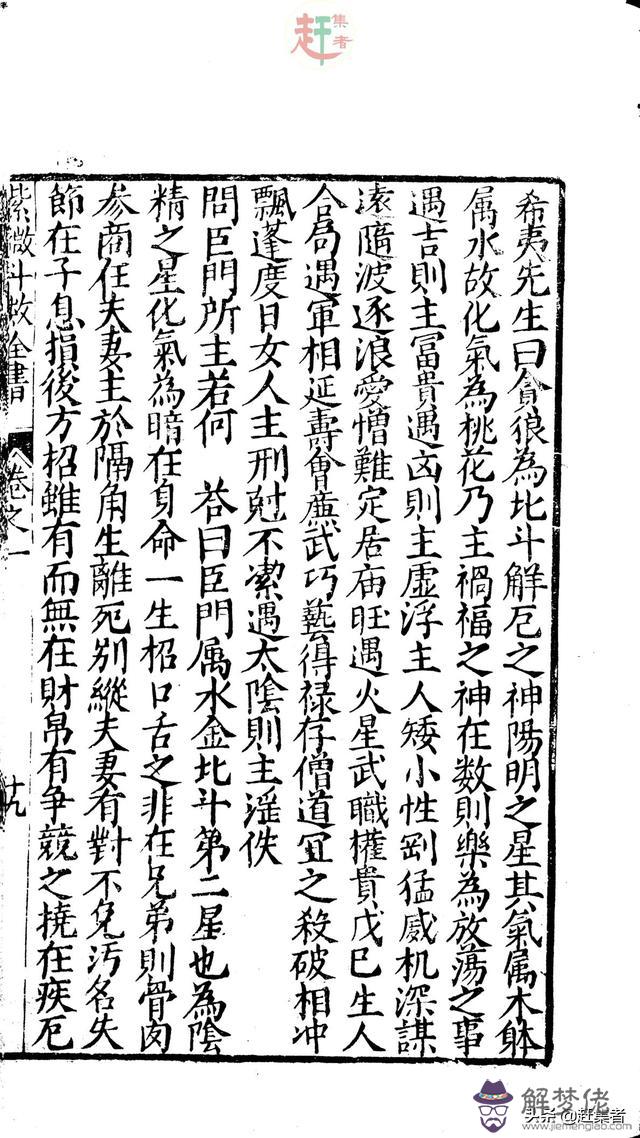 赶集者
希夷先生曰貪狼為北斗解厄之神陽明之星其氣属木躰
属水故化氣為桃花乃主禍福之神在数則樂為放蕩之事
遇吉則主冨貴遇凶則主虚浮主人矮小性剛猛威机深謀
遠隨波逐浪愛憎難定居庙旺遇火星武職權貴戊巳生人
合局遇軍相延壽會廉武巧藝得禄存僧道宜之殺破相冲
飄蓬度日女人主刑尅不潔遇太陰則主滛佚
問巨門所主若何　荅曰巨門属水金北斗第二星也為陰
精之星化氣為暗在身命一生招口舌之非在兄弟則骨肉
参商在夫妻主於隔角生離死别縱夫妻有對不免汚名失
節在子息損後方招雖有而無在財帛有争競之撓在疾厄
紫微斗数全書　卷之一　十九
解梦佬
头条@赶集者
www.jiemenglao.com